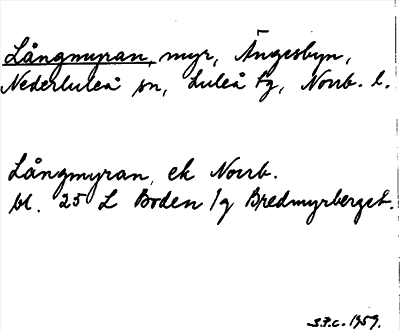 Långmyran, myr, Ängesbyn,
Nederluleå sn, Luleå tg, Norrb. l.
Långmyran, ek Norrb.
bl. 25 L Boden l g Bredmyrberget.
S.F.C. 1959.